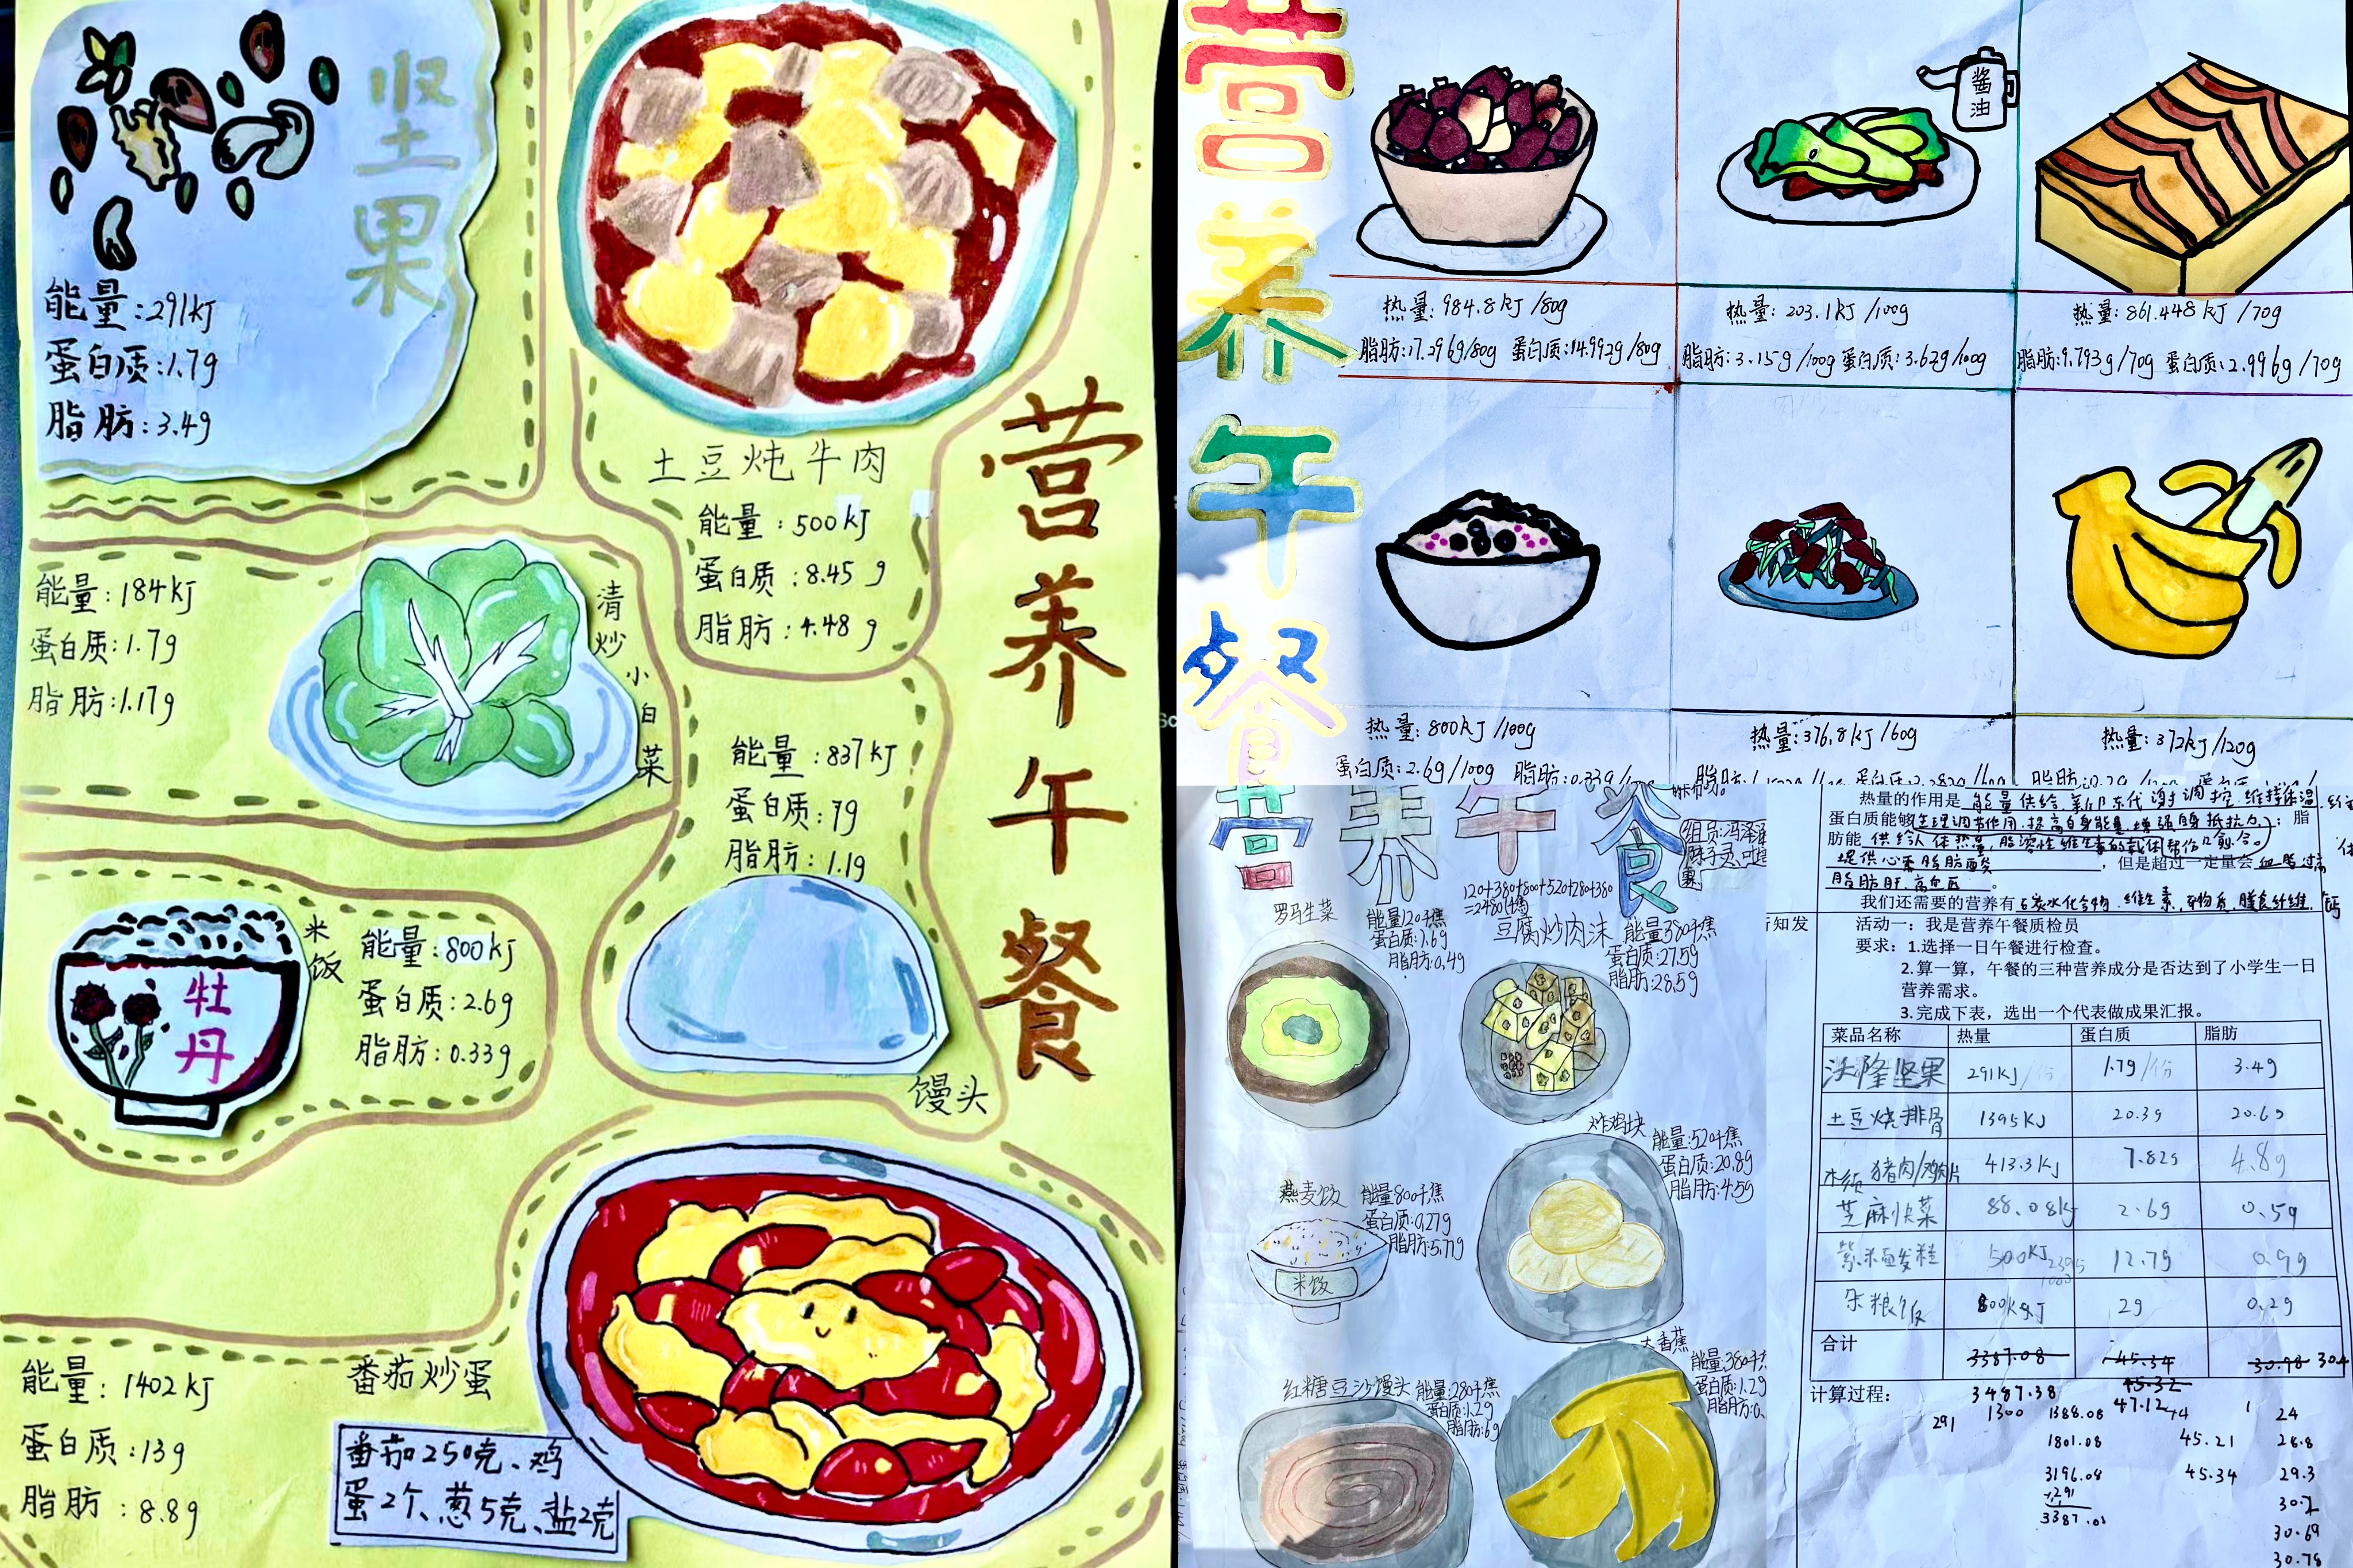 坚果
能量:291kJ
蛋白质:1.7g
脂肪:3.4g
土豆炖牛肉
能量:500kJ
蛋白质:8.45g
脂肪:4.48g
营养午餐
能量:184kJ
蛋白质:1.7g
脂肪:1.17g
清炒小白菜
能量:837kJ
蛋白质:7g
脂肪:1.1g
馒头
米饭
牡丹
能量:800kJ
蛋白质:2.6g
脂肪:0.33g
能量:1402kJ
蛋白质:13g
脂肪:8.8g
番茄炒蛋
番茄250克、鸡
蛋2个、葱5克、盐2克
营养午餐
酱油
热量:984.8kJ/80g
脂肪:17.296g/80g 蛋白质:14.992g/80g
热量:203.1kJ/100g
脂肪:3.15g/100g 蛋白质:3.62g/100g
热量:861.448kJ/70g
脂肪:9.793g/70g 蛋白质:2.996g/70g
热量:800kJ/100g
蛋白质:2.6g/100g 脂肪:0.33g
热量:376.8kJ/60g
热量:372kJ/120g
营养午餐
120+380+800+520+280+380
=2480千焦
罗马生菜
能量120千焦
蛋白质:1.6g
脂肪:0.4g
豆腐炒肉沫
能量380千焦
蛋白质:27.5g
脂肪:28.5g
燕麦饭
能量800千焦
蛋白质:0.27g
脂肪:5.77g
米饭
炸鸡块
能量:520千焦
蛋白质:20.8g
脂肪:45g
红糖豆沙馒头
能量:280千焦
蛋白质:1.2g
脂肪:6g
大香蕉
能量:380千
蛋白质:1.2g
脂肪:0.
热量的作用是 能量供给.新陈代谢调控.维持体温
蛋白质能够生理调节作用.提高自身能量.增强自身抵抗力;脂
肪能 供给人体热量,脂溶性维生素的载体
提供心要脂肪酸,但是超过一定量会血脂过高
脂肪肝.高血压。
我们还需要的营养有 碳水化合物.维生素.矿物质.膳食纤维.钙
知发
活动一:我是营养午餐质检员
要求:1.选择一日午餐进行检查。
2.算一算,午餐的三种营养成分是否达到了小学生一日
营养需求。
3.完成下表,选出一个代表做成果汇报。
菜品名称 热量 蛋白质 脂肪
沃隆坚果 291KJ/份 1.7g/份 3.4g
土豆烧排骨 1395KJ 20.3g 20.6g
木须猪肉/鸡肉片 413.3KJ 7.82g 4.8g
芝麻快菜 88.08KJ 2.6g 0.5g
紫米面发糕 500KJ 12.7g 0.9g
杂粮饭 800KJ 2g 0.2g
合计 3387.08 45.34 30.78 30.4
45.32
计算过程: 3487.38 47.12
291 1300 1388.08 24
1801.08 45.21 28.8
3196.08 45.34 29.3
+291 30.2
3387.08
30.69
30.78